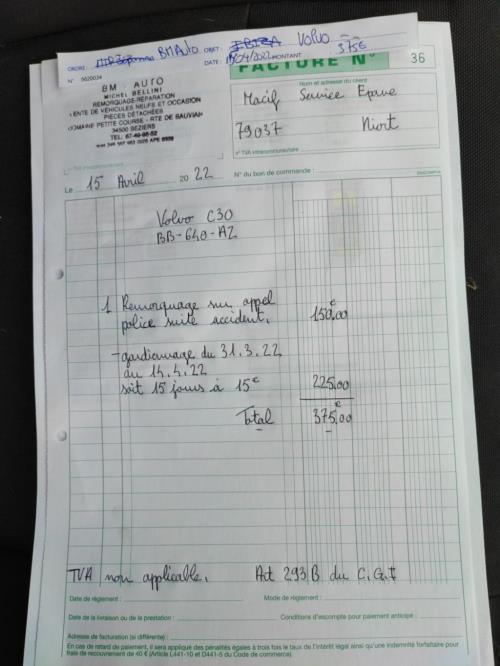 ORDRE: BM Auto OBJET: Volvo
N° 5020034 DATE: MONTANT 375€
FACTURE N° 36
BM AUTO
MICHEL BELLINI
REMORQUAGE-RÉPARATION
VENTE DE VÉHICULES NEUFS ET OCCASION
PIECES DÉTACHÉES
DOMAINE PETITE COURSE - RTE DE BAUVIAH
34500 BEZIERS
Nom et adresse du client
Macif Service Epave
79037 Niort
n° TVA intracommunautaire
Le 15 Avril 2022 N° du bon de commande :
Volvo C30
BB-640-AZ
1 Remorquage sur appel
police suite accident. 150,00 €
- gardiennage du 31.3.22
au 14.4.22
soit 15 jours à 15€ 225,00
Total 375,00 €
TVA non applicable. Art 293 B du C.G.I
Date de règlement : Mode de règlement :
Date de la livraison ou de la prestation : Conditions d'escompte pour paiement anticipé :
Adresse de facturation (si différente) :
En cas de retard de paiement, il sera appliqué des pénalités égales à trois fois le taux de l'intérêt légal ainsi qu'une indemnité forfaitaire pour
frais de recouvrement de 40 € (Article L441-10 et D441-5 du Code de commerce).